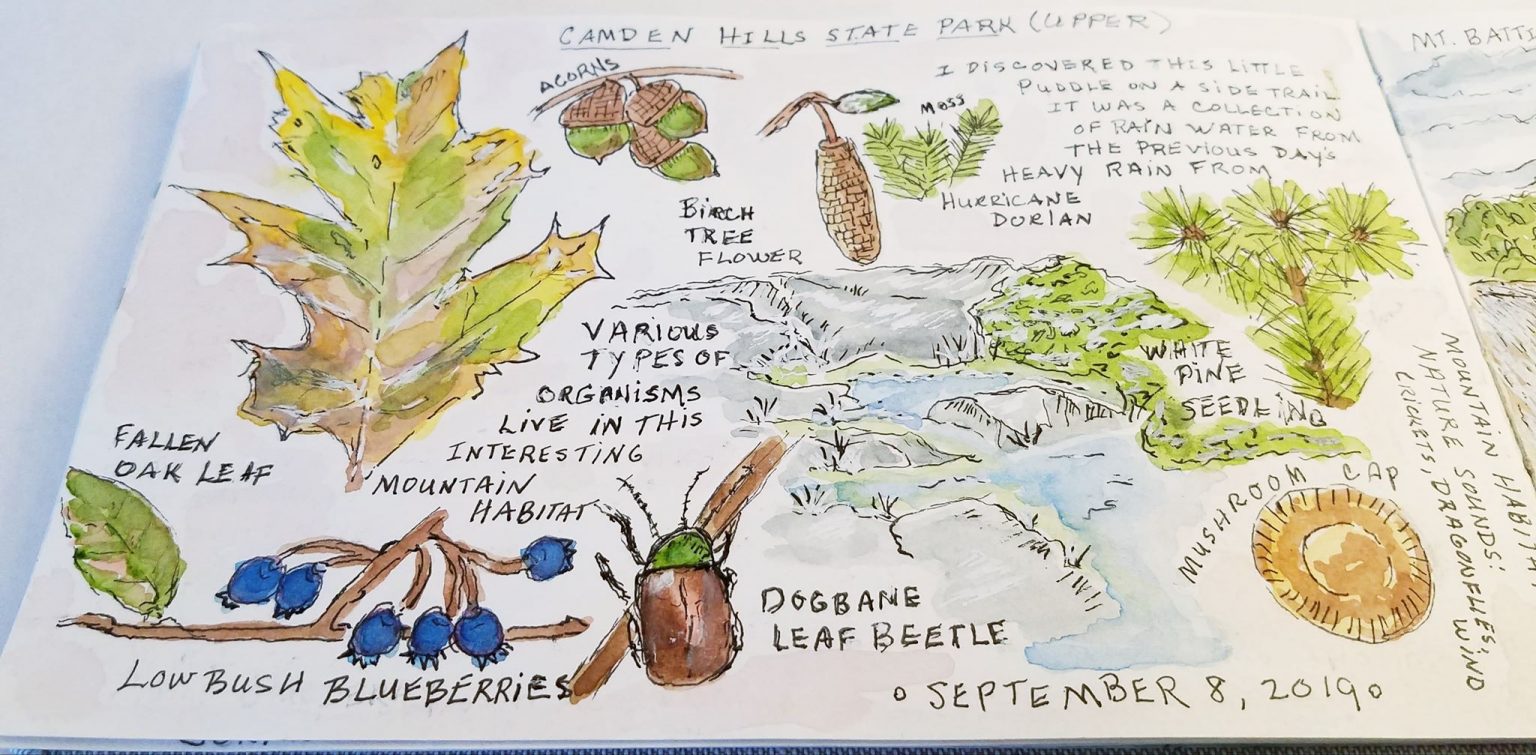 CAMDEN HILLS STATE PARK (UPPER)
ACORNS
BIRCH
TREE
FLOWER
MOSS
I DISCOVERED THIS LITTLE
PUDDLE ON A SIDE TRAIL
IT WAS A COLLECTION
OF RAIN WATER FROM
THE PREVIOUS DAY'S
HEAVY RAIN FROM
HURRICANE
DORIAN
VARIOUS
TYPES OF
ORGANISMS
LIVE IN THIS
INTERESTING
MOUNTAIN
HABITAT
WHITE
PINE
SEEDLING
FALLEN
OAK LEAF
MUSHROOM CAP
DOGBANE
LEAF BEETLE
LOW BUSH BLUEBERRIES
SEPTEMBER 8, 2019
MT.
MOUNTAIN
NATURE SOUNDS:
CRICKETS, DRAGONFLIES, WIND